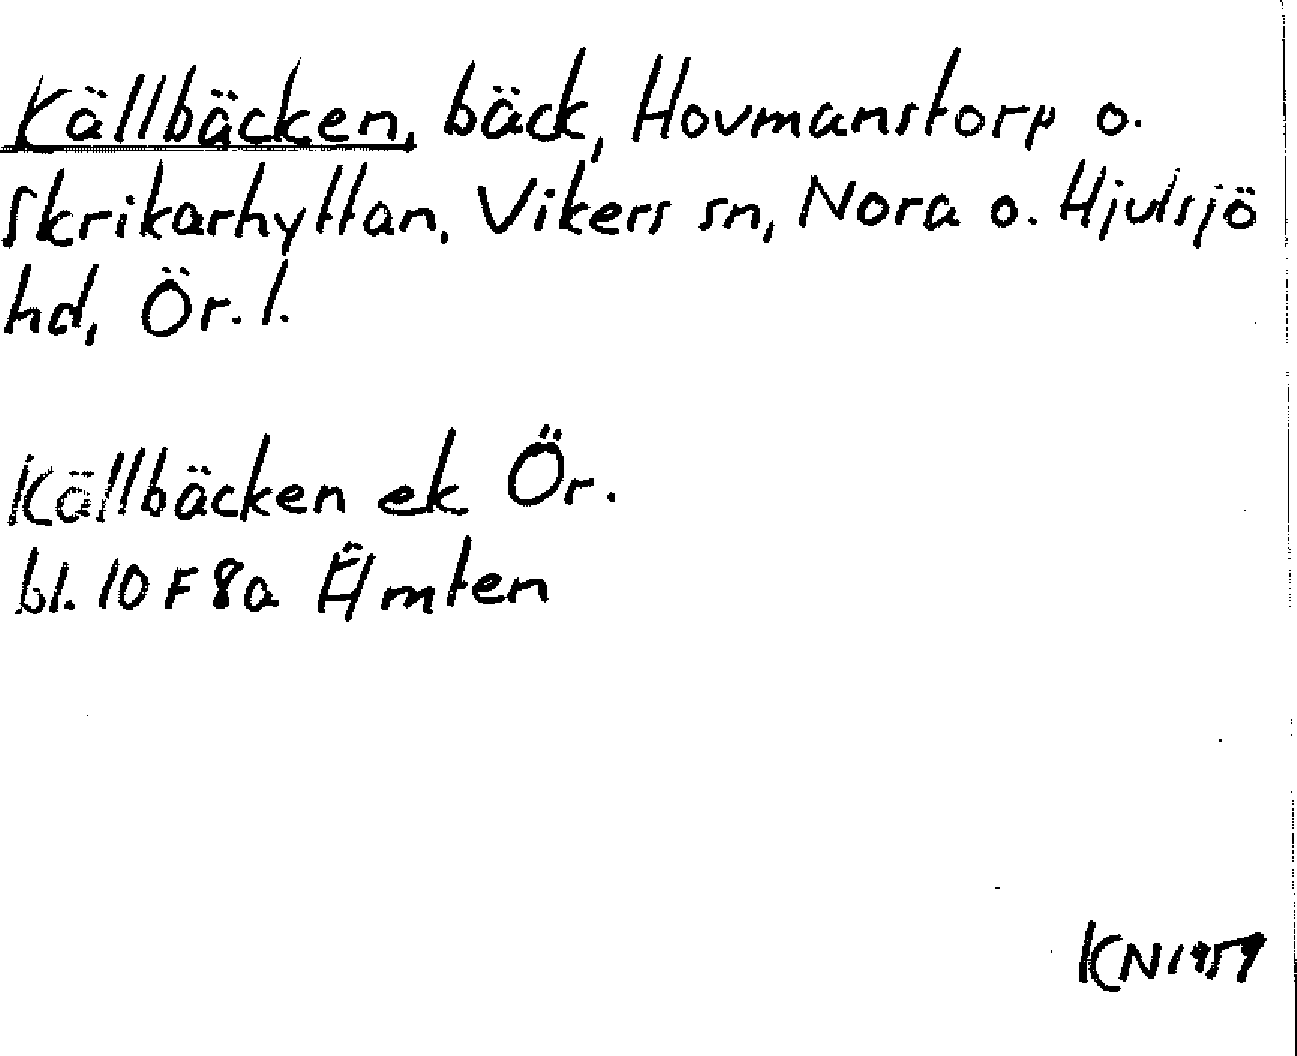 Källbäcken, bäck, Hovmanstorp o.
Skrikarhyttan, Vikers sn, Nora o. Hjulsjö
hd, Ör. l.
Källbäcken ek Ör.
bl. 10 F 8a Älmten
KN 1959